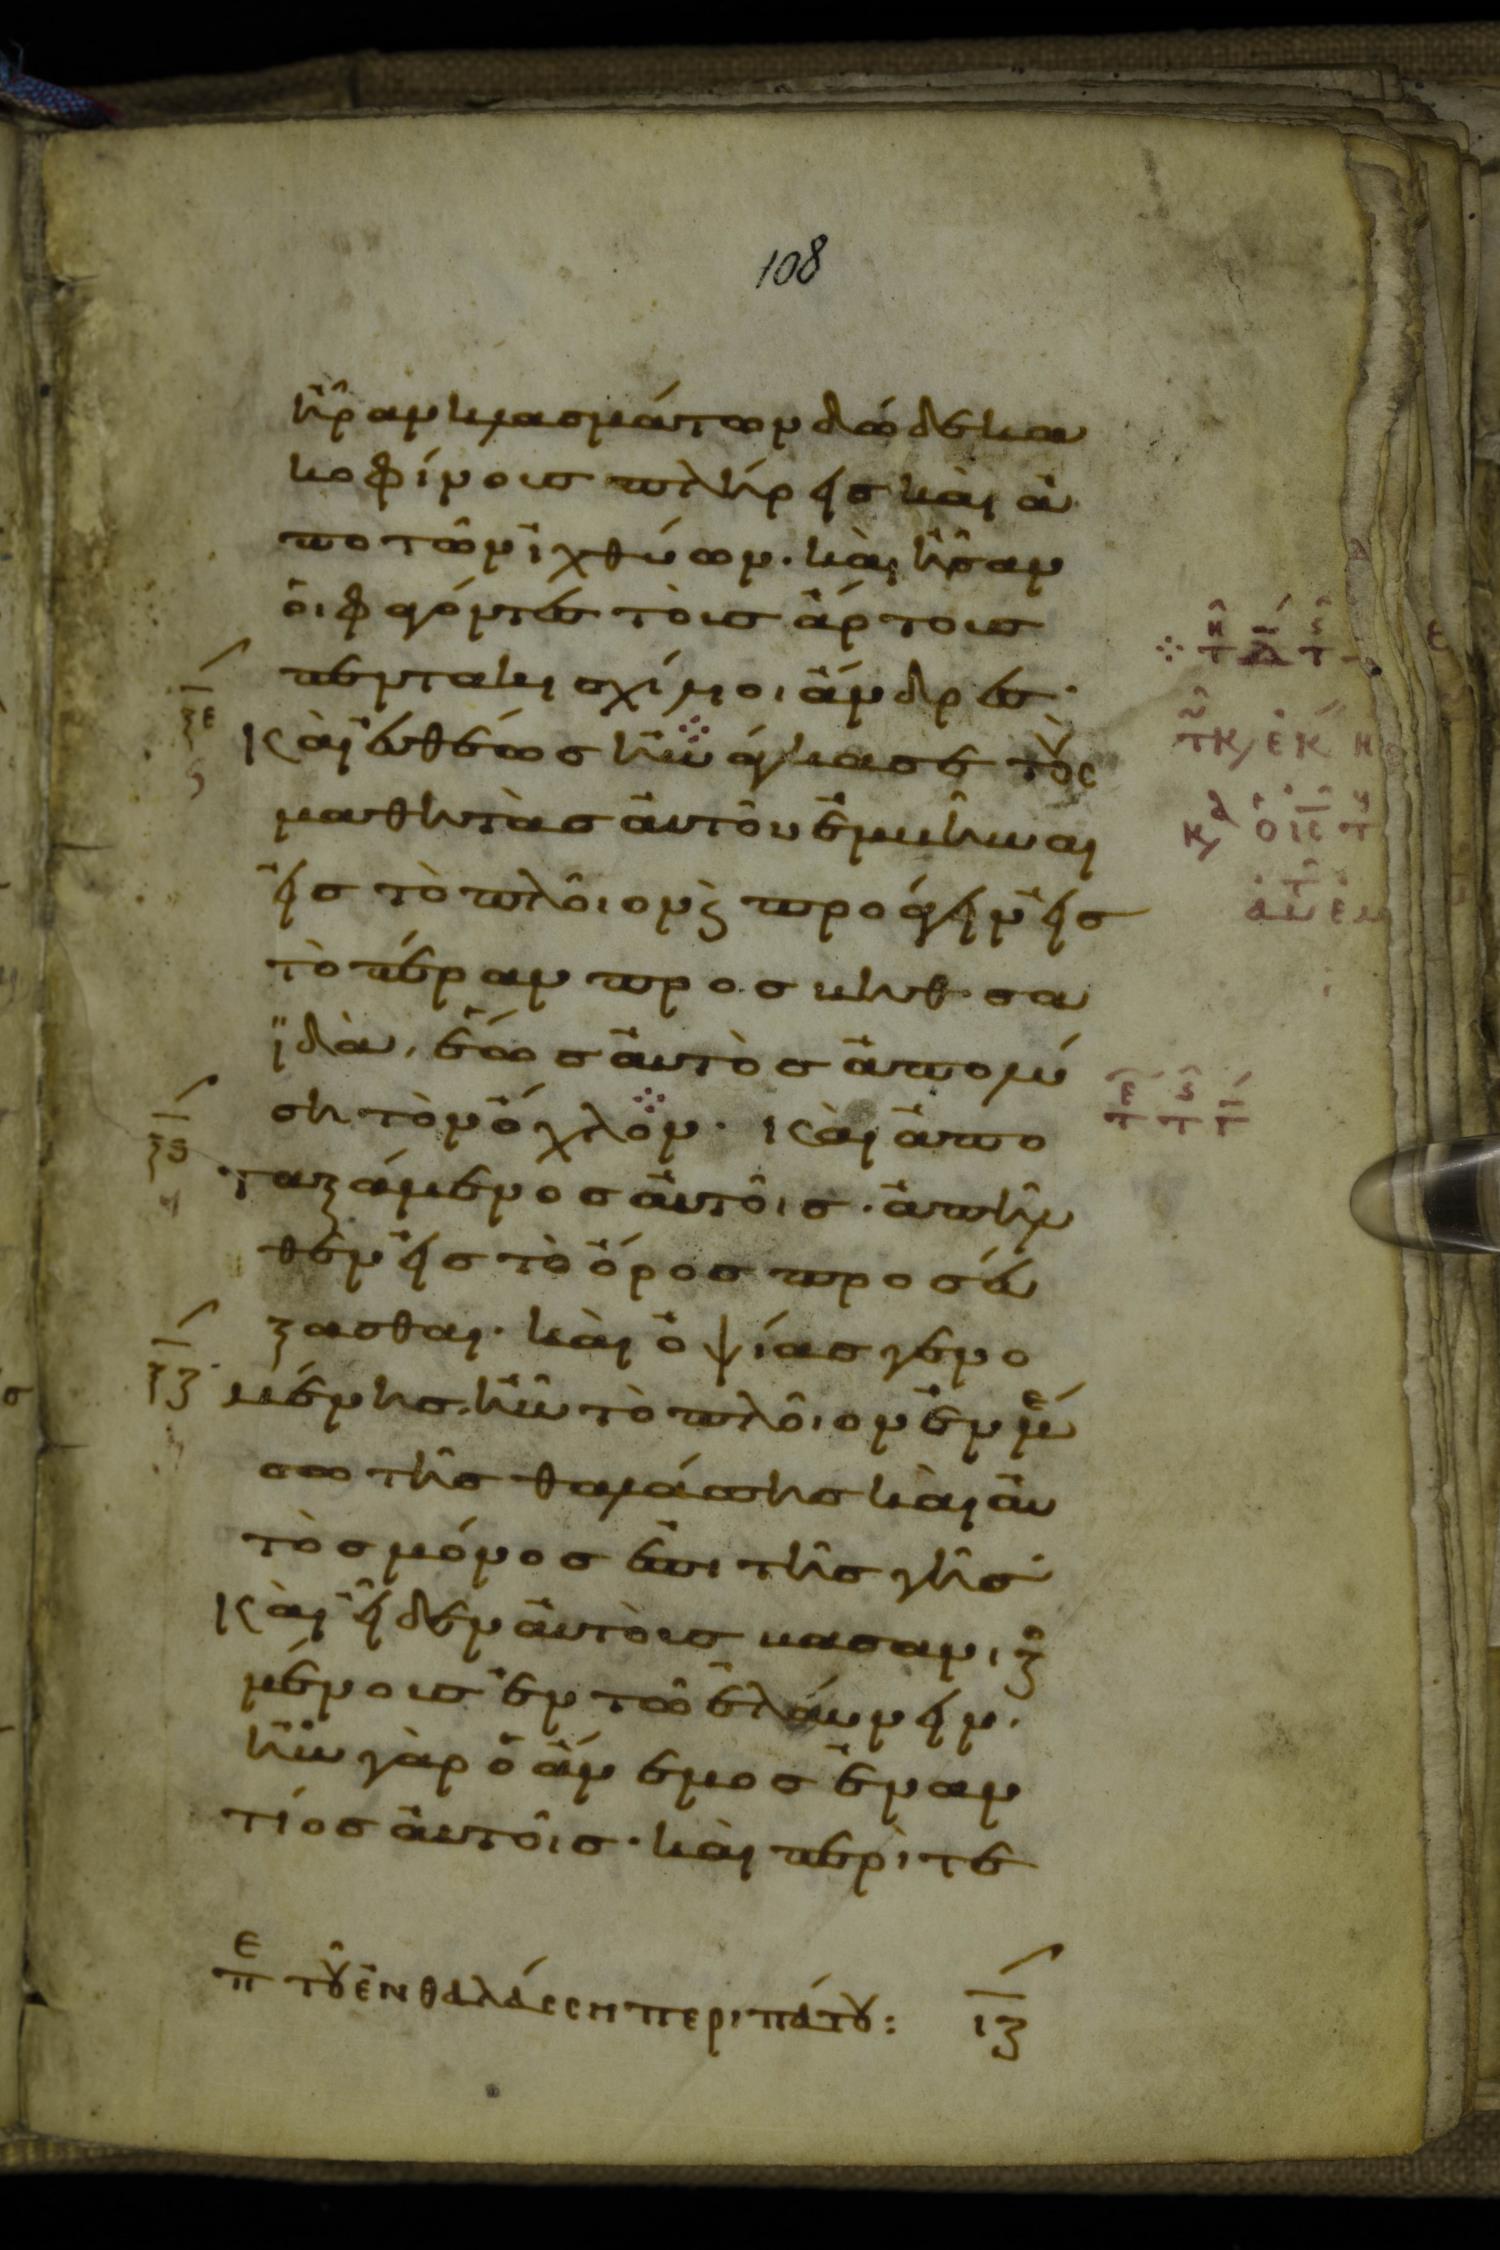 108
ἦραν κλασμάτων δώδεκα
κοφίνοις πλήρεις καὶ ἀ
πο τῶν ἰχθύων· καὶ ἦσαν
ὁι φαγόντες τοὶς ἄρτοις
πενταkισχίλιοι ἄνδρες·
ξε
Καὶ ἐυθέως ἠνάγκασε τοὺς
μαθητὰς ἀυτοῦ ἐμβῆναι
εἰς τὸ πλοῖον ϗ προάγειν εἰς
τὸ πέραν προς βηθσα
ϊδὰ, ἕως ἀυτὸς ἀπολύ
ση τὸν ὄχλον· Καὶ ἀπο
ξς
ταξάμενος ἀυτοῖς· ἀπῆλ
θεν εἰς τὸ ὄρος προσεύ
ξασθαι· καὶ ὀψίας γενο
ξζ
μένης· ἦν τὸ πλοῖον ἐν μέ
σω τῆς θαλάσσης καὶ ἀυ
τὸς μόνος ἐπι τῆς γῆς·
Καὶ εἶδεν ἀυτοὶς βασανιζο
μένοις ἐν τῶ ἐλάυνειν·
ἦν γὰρ ὁ ἄνεμος ἐναν
τίος ἀυτοῖς· καὶ περὶ τε
πε τοῦ ἐν θαλάσση περιπάτου: ιζ